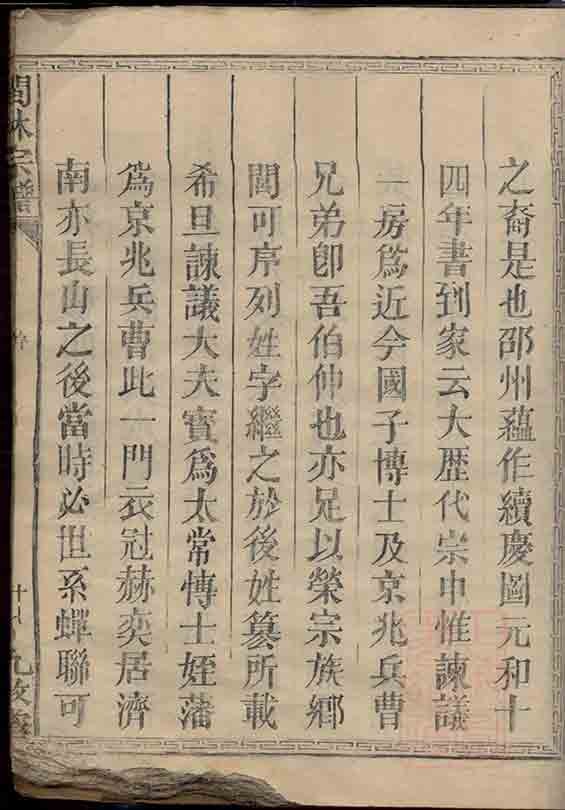 之裔是也邵州蘊作續慶圖元和十
四年書到家云大歷代宗中惟諫議
一房爲近今國子博士及京兆兵曹
兄弟卽吾伯仲也亦足以榮宗族鄉
閭可序列姓字繼之於後姓纂所載
希旦諫議大夫寳爲太常博士姪藩
爲京兆兵曹此一門衣冠赫奕居濟
南亦長山之後當時必世系蟬聯可
林宗譜